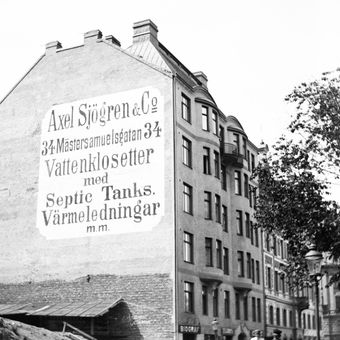 Axel Sjögren & Co
34 Mästersamuelsgatan 34
Vattenklosetter
med
Septic Tanks.
Värmeledningar
m.m.
BIOGRAF